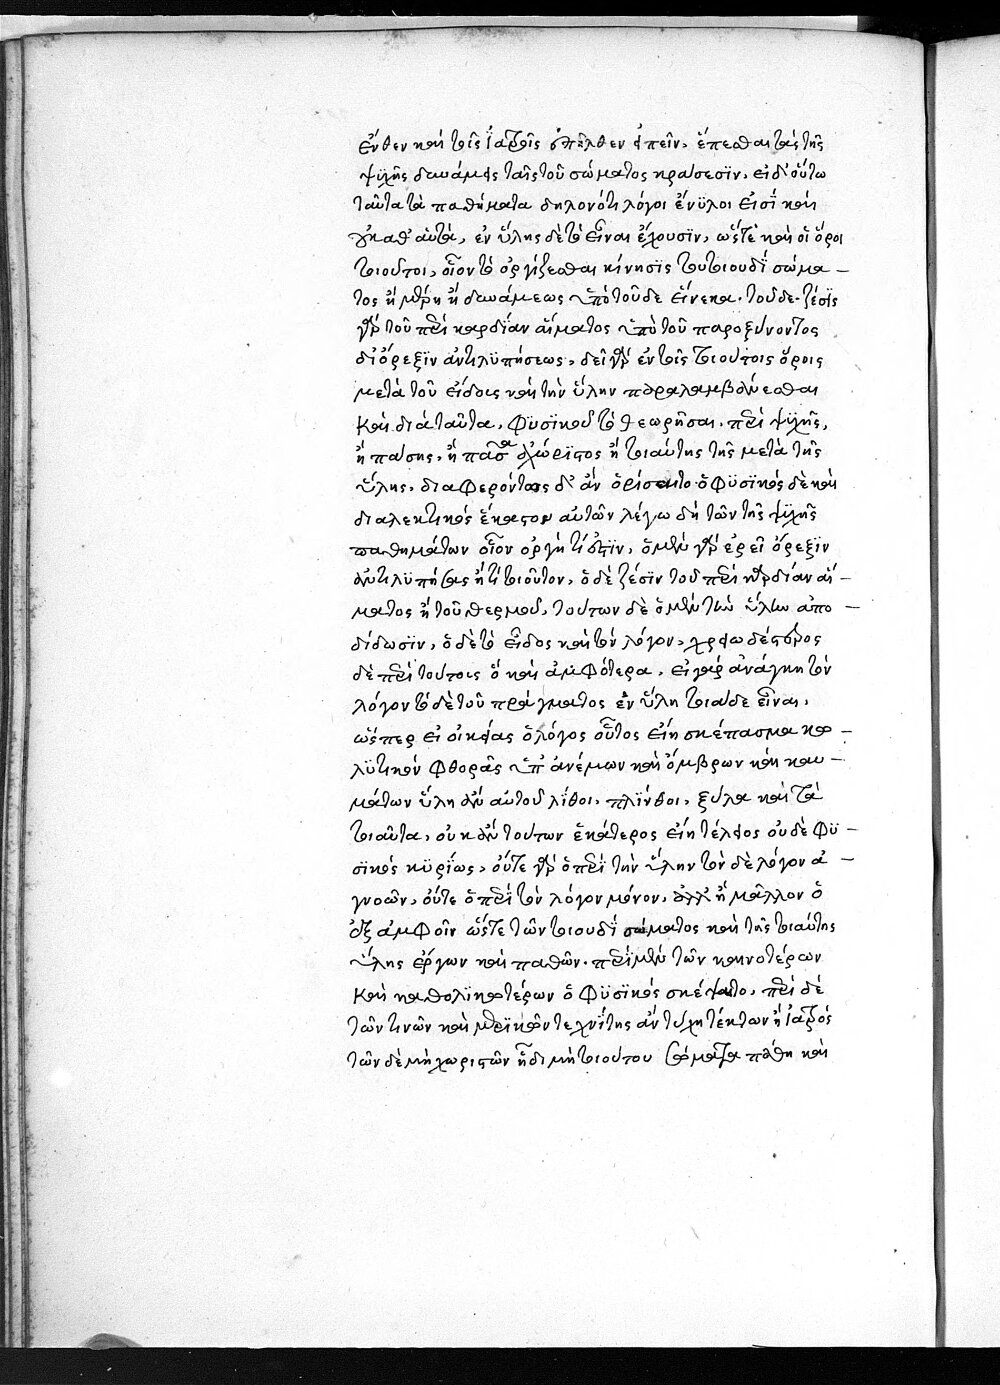 ἔνθεν καὶ τοῖς ἰατροῖς ἐπῆλθεν εἰπεῖν, ἕπεσθαι τὰς τῆς
ψϋχῆς δυνάμεις ταῖς τοῦ σώματος κράσεσϊν, εἰ δ' οὕτω
ταῦτα τὰ παθήματα δηλονότι λόγοι ἔνϋλοι εἰσὶ καὶ
οὐ καθ' αὑτὰ, ἐν ὕλης δὲ τὸ εἶναι ἔχουσϊν, ὥστε καὶ οἱ ὅροι
τοιοῦτοι, οἷον τὸ ὀργίζεσθαι κίνησϊς τοῦ τοιουδῒ σώμα –
τος ἢ μέρη ἢ δυνάμεως ὑπὸ τοῦδε ἕνεκα τοῦδε· ζέσϊς
γὰρ τοῦ περὶ καρδΐαν αἵματος ὑπὸ τοῦ παροξύνοντος
δι' ὄρεξϊν ἀντιλϋπήσεως, δεῖ γὰρ ἐν τοῖς τοιούτοις ὅροις
μετὰ τοῦ εἴδους καὶ τὴν ὕλην παραλαμβάνεσθαι
καὶ διὰ ταῦτα, φϋσϊκοῦ τὸ θεωρῆσαι, περὶ ψϋχῆς,
ἢ πάσης, ἢ πᾶσα ἀχώρϊστος ἢ τοιαύτης τῆς μετὰ τῆς
ὕλης, διαφερόντως δ' ἂν ὁρίσαιτο ὁ φϋσϊκός δὲ καὶ
διαλεκτικὸς ἕκαστον αὐτῶν λέγω δὴ τῶν τῆς ψϋχῆς
παθημάτων οἷον ὀργὴ τί ἐστϊν, ὁ μὲν γὰρ ἐρεῖ ὄρεξϊν
ἀντιλϋπήσεως ἤ τι τοιοῦτον, ὁ δὲ ζέσϊν τοῦ περὶ καρδίαν αἵ –
ματος ἢ τοῦ θερμοῦ, τούτων δὲ ὁ μὲν τὴν ὕλην ἀπο –
δίδωσϊν, ὁ δὲ τὸ εἶδος καὶ τὸν λόγον,
δὲ περὶ τούτοις ὁ καὶ ἀμφότερα, εἰ γὰρ ἀνάγκη τὸν
λόγον τόδε τοῦ πράγματος ἐν ὕλη τοιᾶδε εἶναι,
ὥσπερ εἰ οἰκείας ὁ λόγος οὗτος εἴη σκέπασμα κω –
λϋτικὸν φθορᾶς ὑπ' ἀνέμων καὶ ὄμβρων καὶ καυ –
μάτων ὕλη δ' ἂν αὐτοῦ λίθοι, πλΐνθοι, ξύλα καὶ τὰ
τοιαῦτα, οὐκ ἂν τούτων ἑκάτερος εἴη τέλειος οὐδὲ φϋ –
σϊκὸς κϋρΐως, οὔτε γὰρ ὁ περὶ τὴν ὕλην τὸν δὲ λόγον ἀ –
γνοῶν, οὔτε ὁ περὶ τὸν λόγον μόνον, ἀλλ' ἢ μᾶλλον ὁ
ἐξ ἀμφοῖν ὥστε τῶν τοιουδῒ σώματος καὶ τῆς τοιαύτης
ὕλης ἔργων καὶ παθῶν. περὶ μὲν τῶν κοινοτέρων
καὶ καθολϊκωτέρων ὁ φϋσϊκὸς σκέψαιτο, περὶ δὲ
τῶν τινῶν καὶ μερϊκῶν τεχνΐτης ἂν τύχη τέκτων ἢ ἰατρός
τῶν δὲ μὴ χωριστῶν ᾗ δὲ μὴ τοιούτου σώματα πάθη καὶ